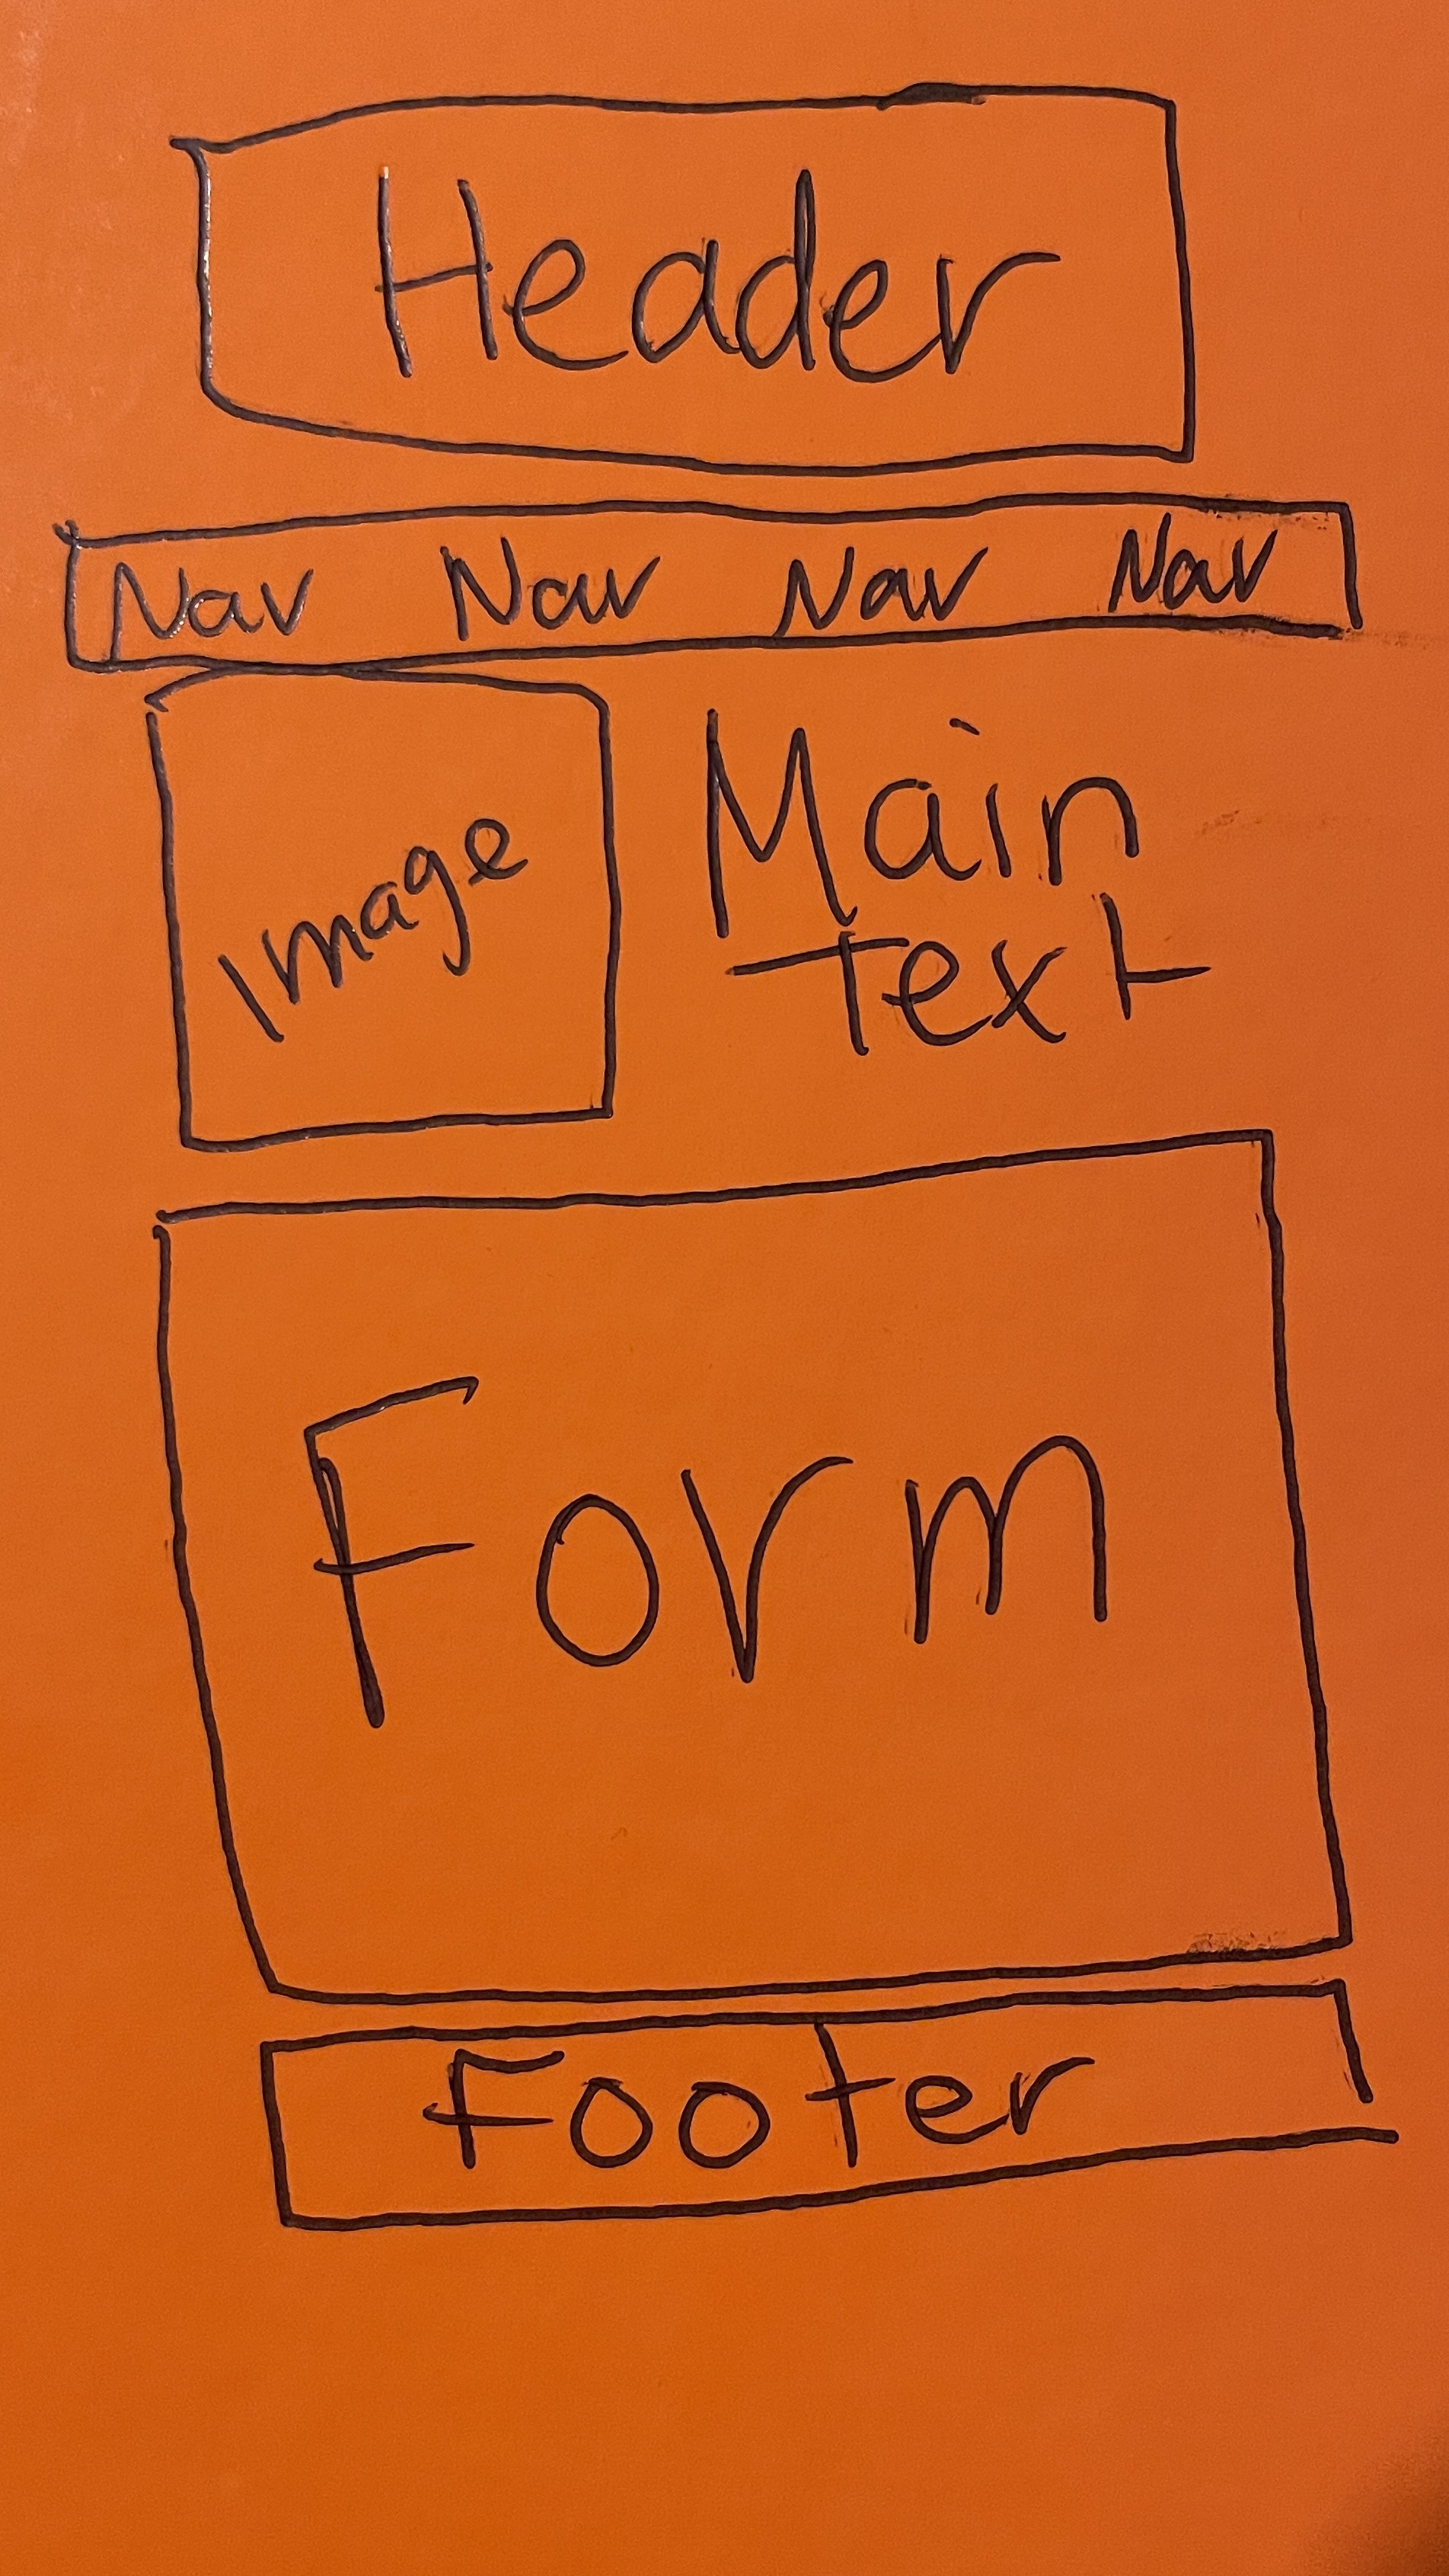 Header
Nav Nav Nav Nav
Image
Main
Text
Form
Footer